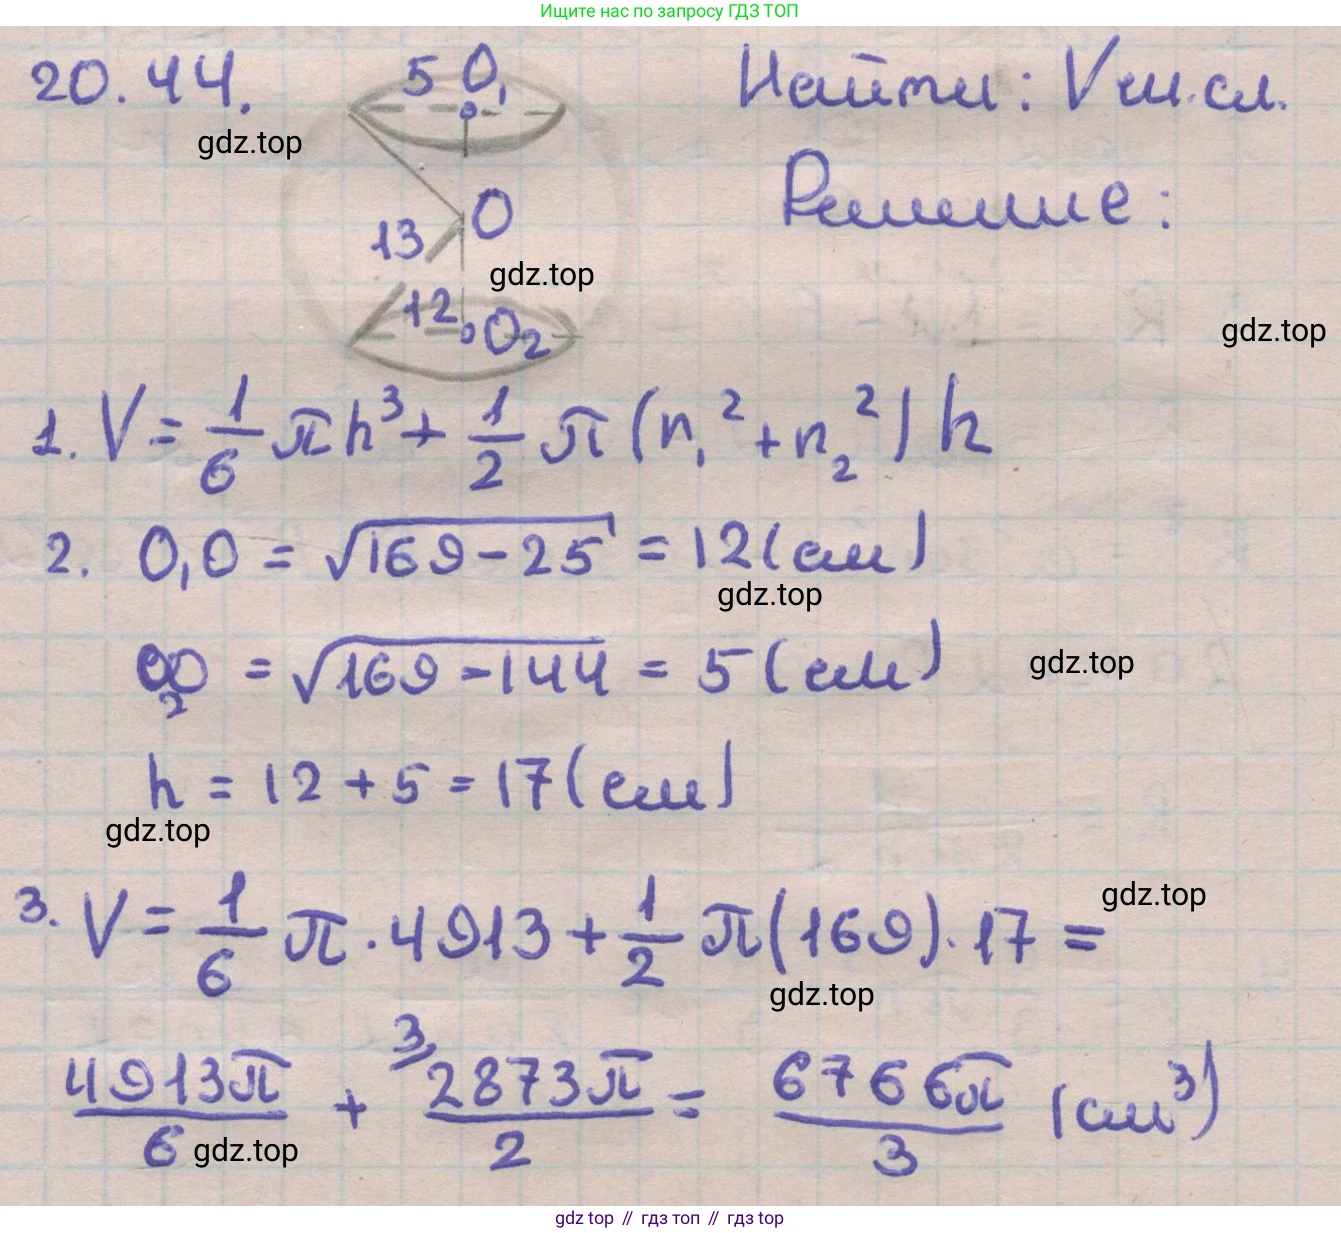 Ищите нас по запросу ГДЗ ТОП
20.44.
gdz.top
5 O₁
Найти: Vш.сл.
Решение:
13
O
gdz.top
12
O₂
gdz.top
1. V = 1/6 πh³ + 1/2 π(r₁² + r₂²)h
2. O₁O = √169-25 = 12(см)
gdz.top
OO₂ = √169-144 = 5(см)
gdz.top
h = 12 + 5 = 17(см)
gdz.top
gdz.top
3. V = 1/6 π · 4913 + 1/2 π(169) · 17 =
gdz.top
4913π/6 + ³⁄ 2873π/2 = 6766π/3 (см³)
gdz.top
gdz top // гдз топ // гдз top